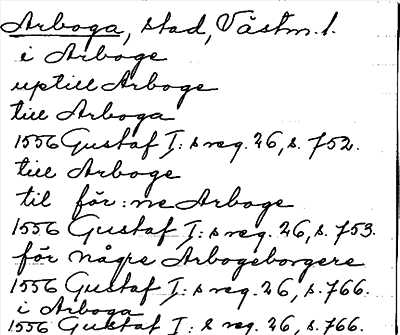 Arboga, stad, Västm. l.
i Arboge
uptill Arboge
till Arboga
1556 Gustaf I:s reg. 26, s. 752.
till Arboge
til för:ne Arboge
1556 Gustaf I:s reg. 26, s. 753.
för någre Arbogeborgere
1556 Gustaf I:s reg. 26, s. 766.
i Arboga
1556 Gustaf I:s reg. 26, s. 766.